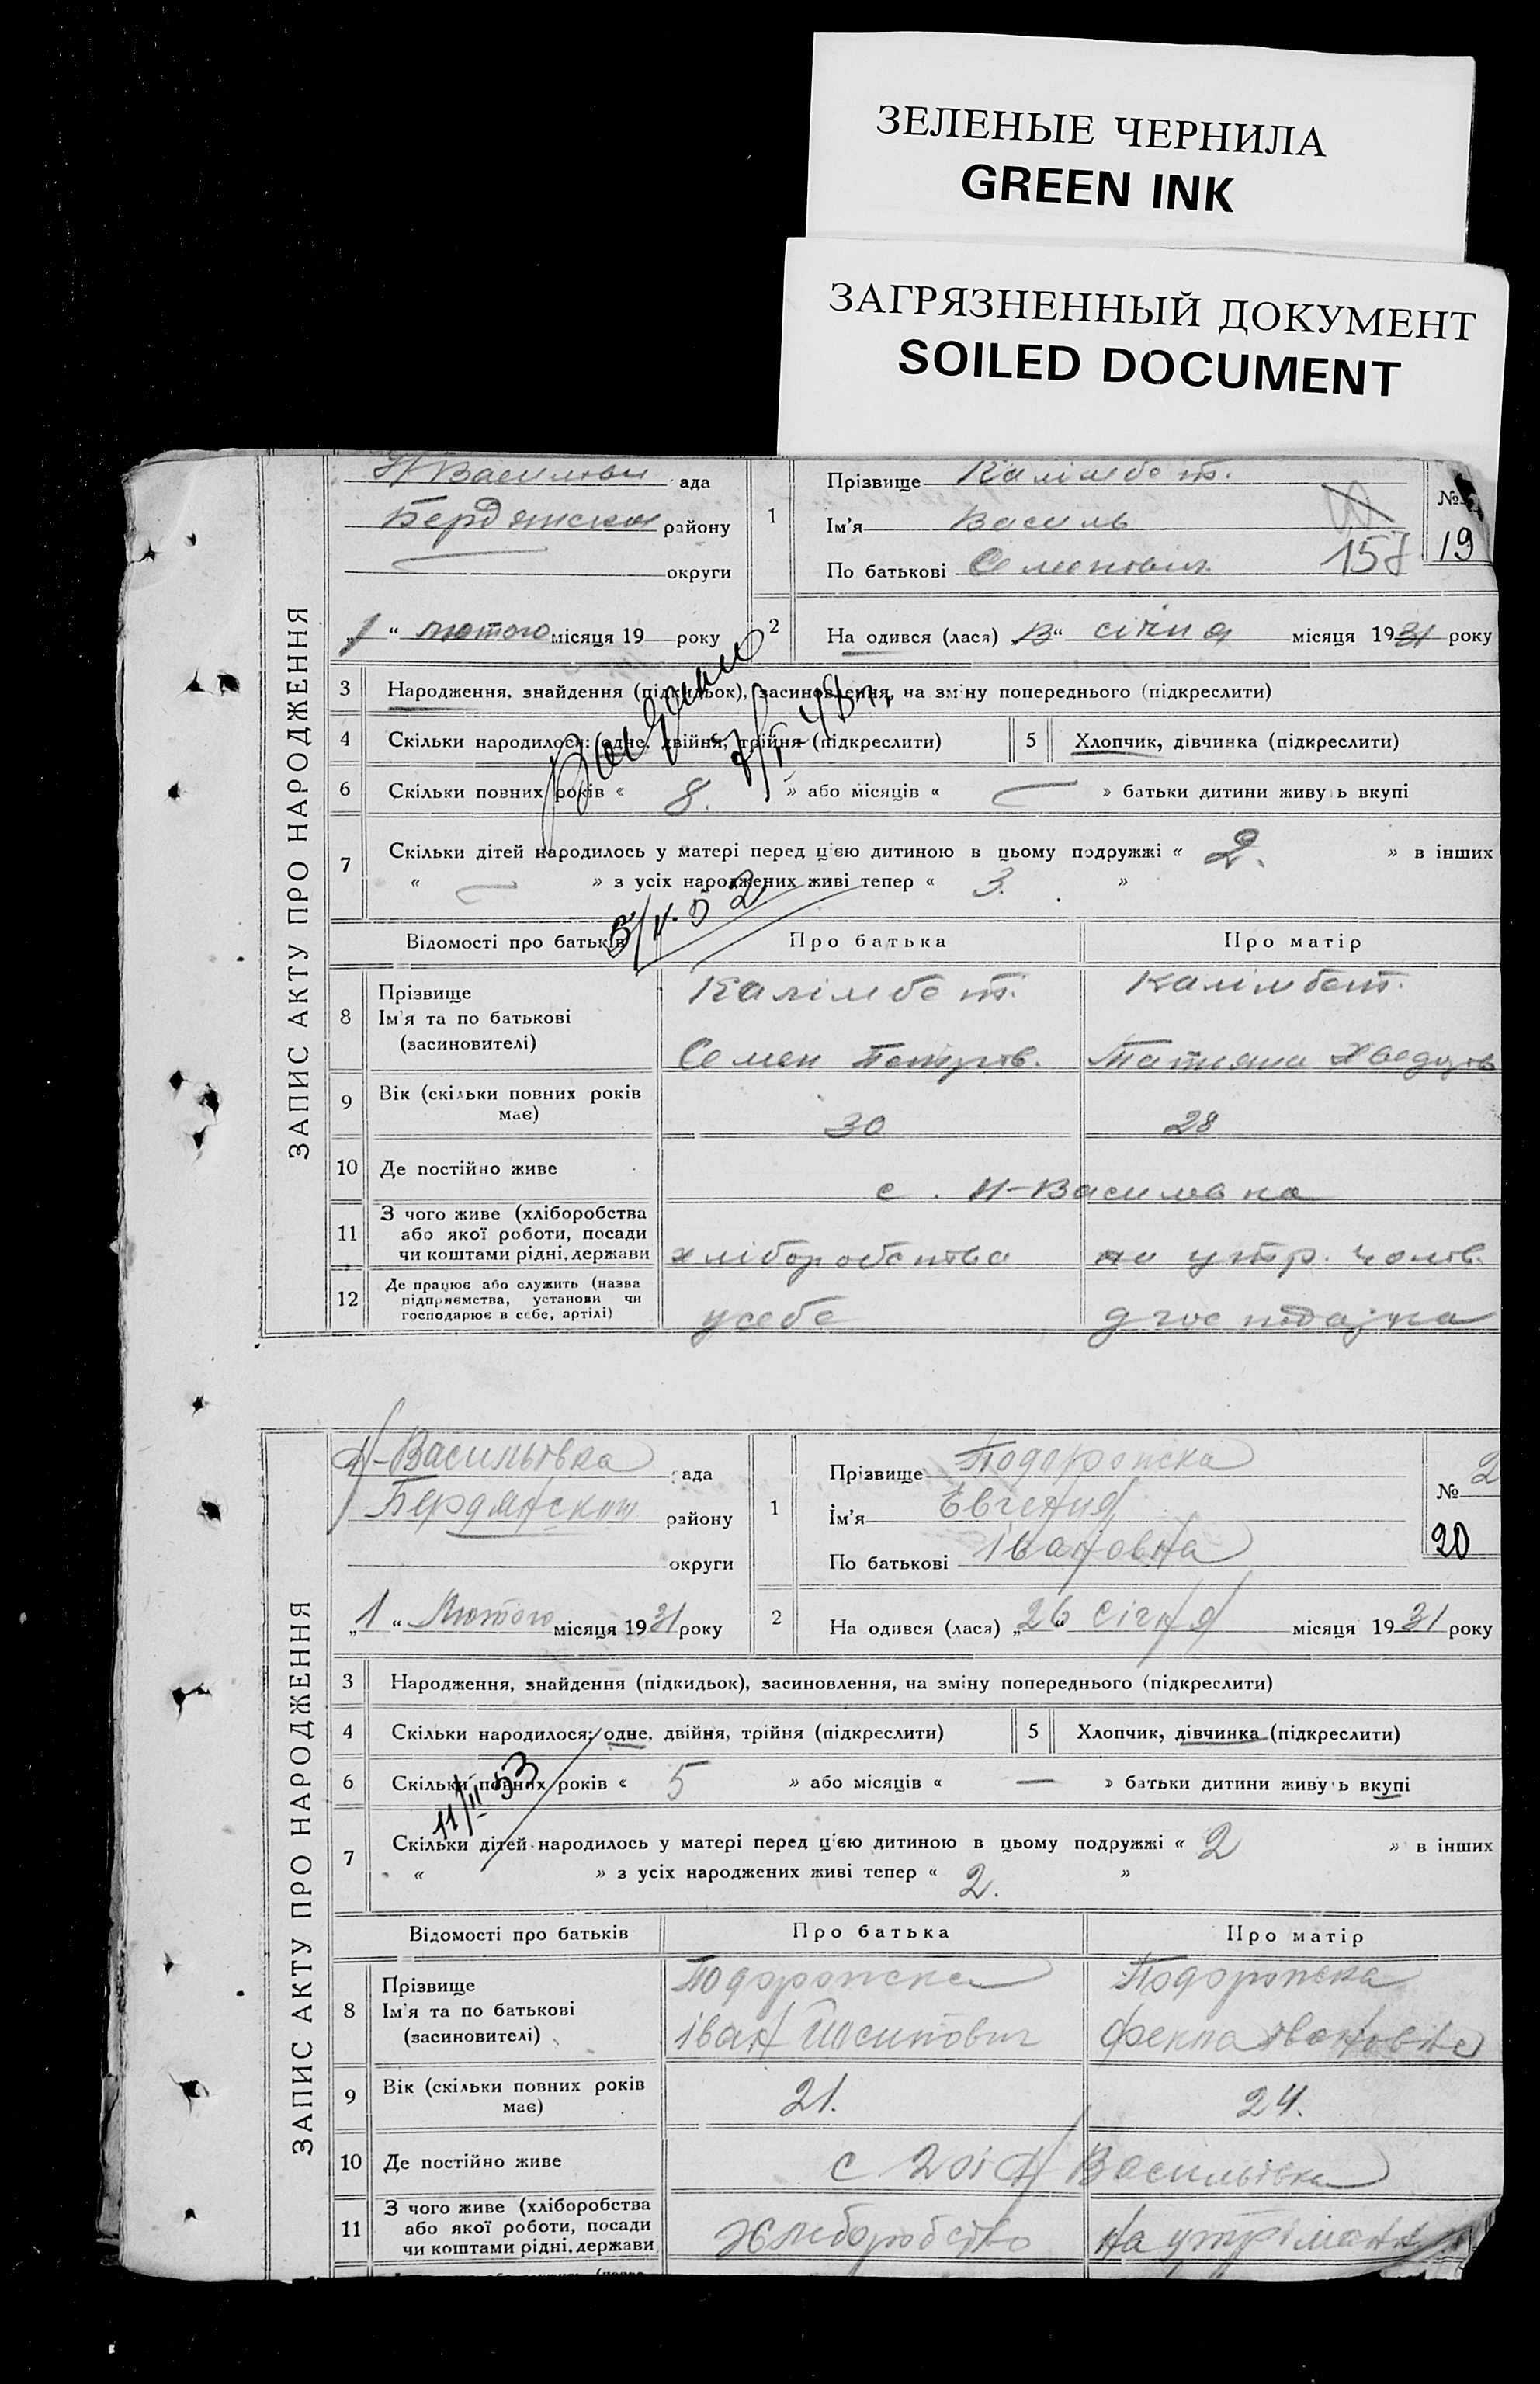 ЗЕЛЕНЫЕ ЧЕРНИЛА
GREEN INK
ЗАГРЯЗНЕННЫЙ ДОКУМЕНТ
SOILED DOCUMENT
ЗАПИС АКТУ ПРО НАРОДЖЕННЯ
ада
Бердянськ району
округи
1 “ лютого місяця 19 року
1 Прізвище Калімбет.
Ім'я Василь
По батькові Семенович
№
19
2 На одився (лася) „ “ січня місяця 1931 року
3 Народження, знайдення (підкидьок), засиновлення, на зміну попереднього (підкреслити)
4 Скільки народилося: одне, двійня, трійня (підкреслити) 5 Хлопчик, дівчинка (підкреслити)
6 Скільки повних років « 8. » або місяців « — » батьки дитини живу ь вкупі
7 Скільки дітей народилось у матері перед цією дитиною в цьому подружжі « 2. » в інших
« — » з усіх народжених живі тепер « 3. »
5/V.52
Відомості про батьків Про батька Про матір
8 Прізвище Калімбет. Калімбет.
Ім'я та по батькові
(засиновителі) Семен Петров. Татияна Хведоров
9 Вік (скільки повних років має) 30 28
10 Де постійно живе с. Н-Василовка
11 З чого живе (хліборобства
або якої роботи, посади
чи коштами рідні, держави хліборобства на утр. чолов.
12 Де працює або служить (назва
підприємства, установи чи
господарює в себе, артілі) у себе
ЗАПИС АКТУ ПРО НАРОДЖЕННЯ
Н-Васильівка ада
Бердянском району
округи
„1 “ Лютого місяця 1931 року
1 Прізвище Подорожска
Ім'я Євгенія
По батькові Івановна
№ 2
20
2 На одився (лася) „26 Січня місяця 1931 року
3 Народження, знайдення (підкидьок), засиновлення, на зміну попереднього (підкреслити)
4 Скільки народилося: одне, двійня, трійня (підкреслити) 5 Хлопчик, дівчинка (підкреслити)
6 Скільки повних років « 5 » або місяців « — » батьки дитини живу ь вкупі
11/II 53
7 Скільки дітей народилось у матері перед цією дитиною в цьому подружжі « 2 » в інших
« » з усіх народжених живі тепер « 2. »
Відомості про батьків Про батька Про матір
8 Прізвище Подорожска Подорожска
Ім'я та по батькові
(засиновителі) Іван Йосипович Фекла Івановна
9 Вік (скільки повних років має) 21. 24.
10 Де постійно живе с Васильівка
11 З чого живе (хліборобства
або якої роботи, посади
чи коштами рідні, держави Хліборобство На утріманн